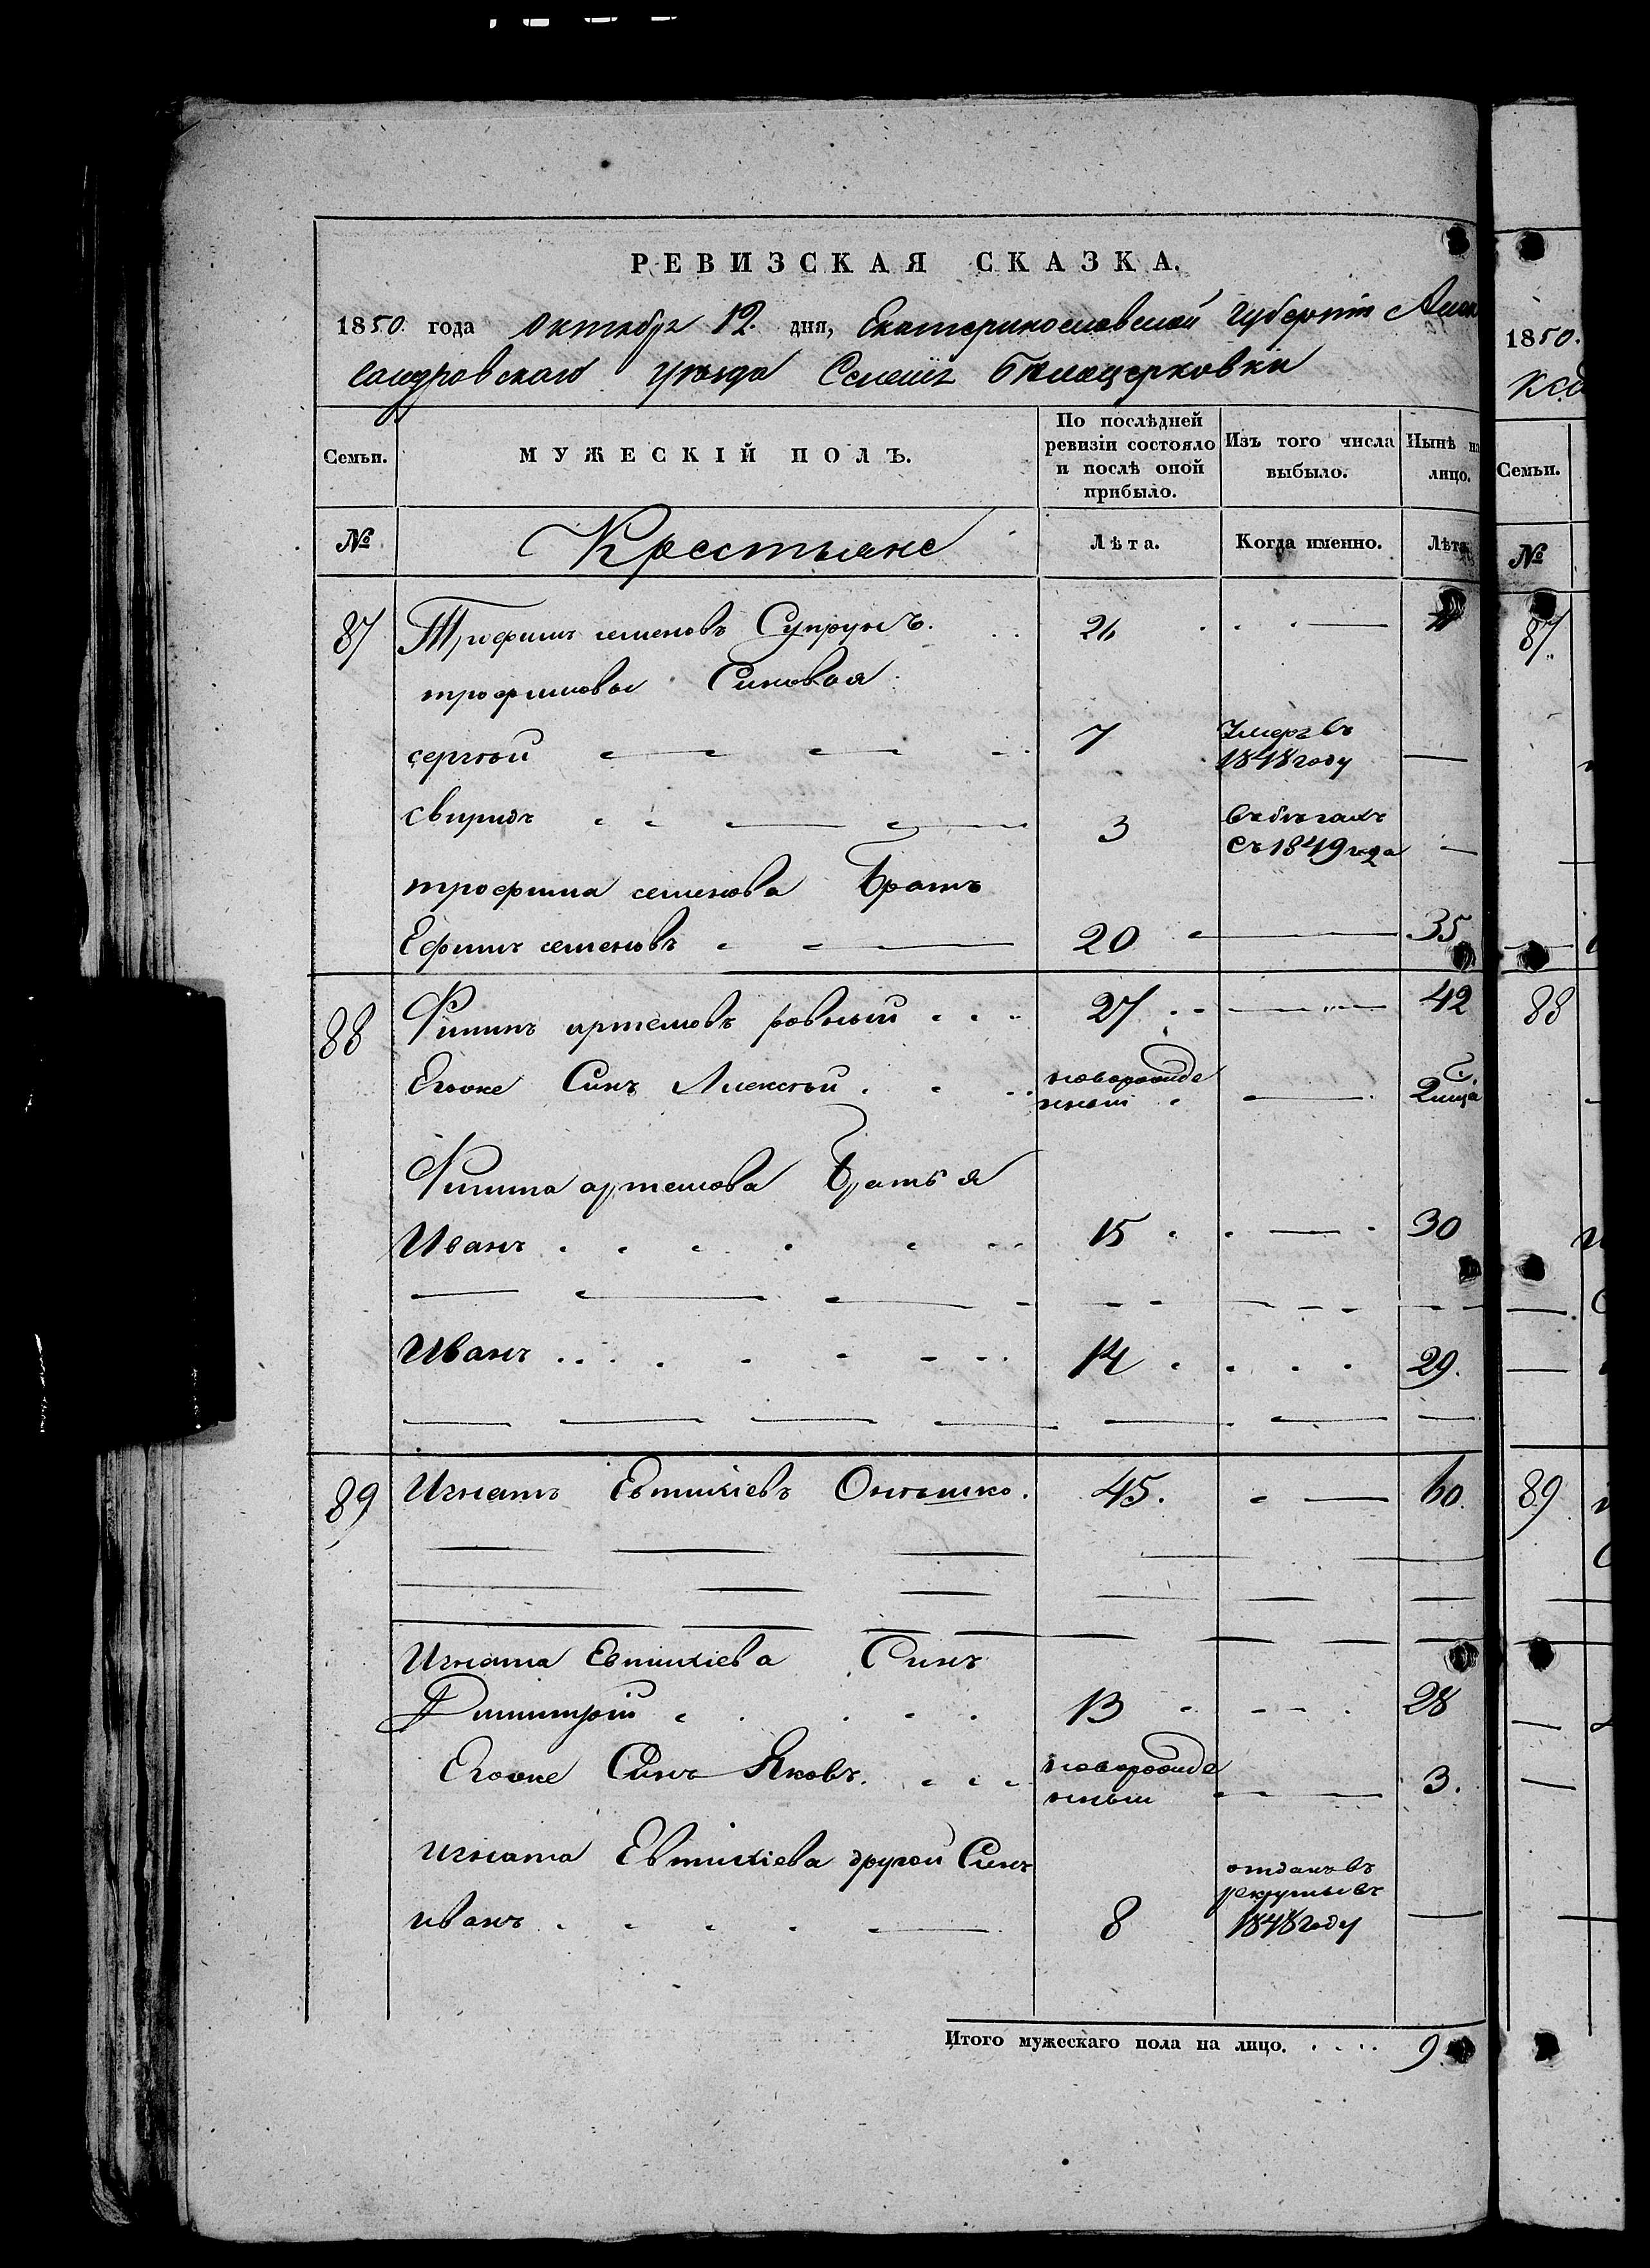 РЕВИЗСКАЯ СКАЗКА.
1850. года октября 12. дня, Екатеринославской губернiи Алек
сандровскаго уѣзда Селенiя Белоцерковки
Семьи. МУЖЕСКІЙ ПОЛЪ. По послѣдней ревизіи состояло и послѣ оной прибыло. Изъ того числа выбыло. Нынѣ на лицо.
№ Крестьяне Лѣта. Когда именно. Лѣта
87 Трофимъ семеновъ Супрунъ. 26
трофимовы Сыновья
сергѣй 7 Умеръ въ 1848 году
свиридъ 3 Въ бѣгахъ съ 1849 года
трофима семенова Братъ
Ефимъ семеновъ 20 35
88 Филипъ артемовъ ровный 27 42
Егоже Сынъ Алексѣй новорожде нный 2 мца
Филипа артемова Братья
Иванъ 15 30
Иванъ 14 29.
89 Игнатъ Евтихіевъ Онышко. 45. 60.
Игната Евтихіева Сынъ
Димитрій 13 28
Егоже Сынъ Яковъ. новорожде нный 3.
игната Евтихіева другой Сынъ
иванъ 8 отданъ въ рекруты въ 1848 году
Итого мужескаго пола на лицо. 9.
1850.
Семьи.
№
87
88
89